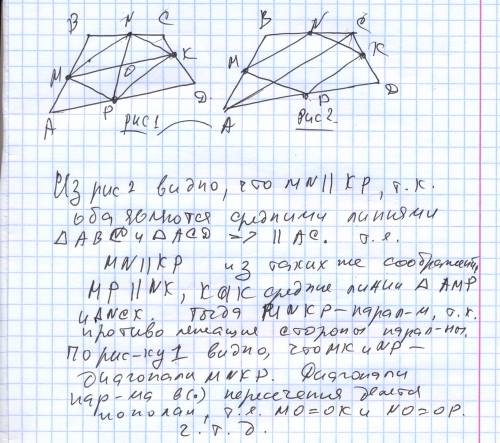 B N C
M O K
A P D
рис 1
B N C
M K
A P D
рис 2
Из рис 2 видно, что MN || KP, т.к.
оба являются средними линиями
△ ABC и △ ACD => || AC. т.е.
MN || KP из таких же соображений
MP || NK, как средние линии △ AMP
и △NCK. Тогда PMNKP – парал-м, т.к.
противолежащие стороны парал-ны.
По рис-ку 1 видно, что MK и NP –
диагонали MNKP. Диагонали
пар-ма в (·) пересечения делятся
пополам, т.е. MO=OK и NO=OP.
ч. т. д.